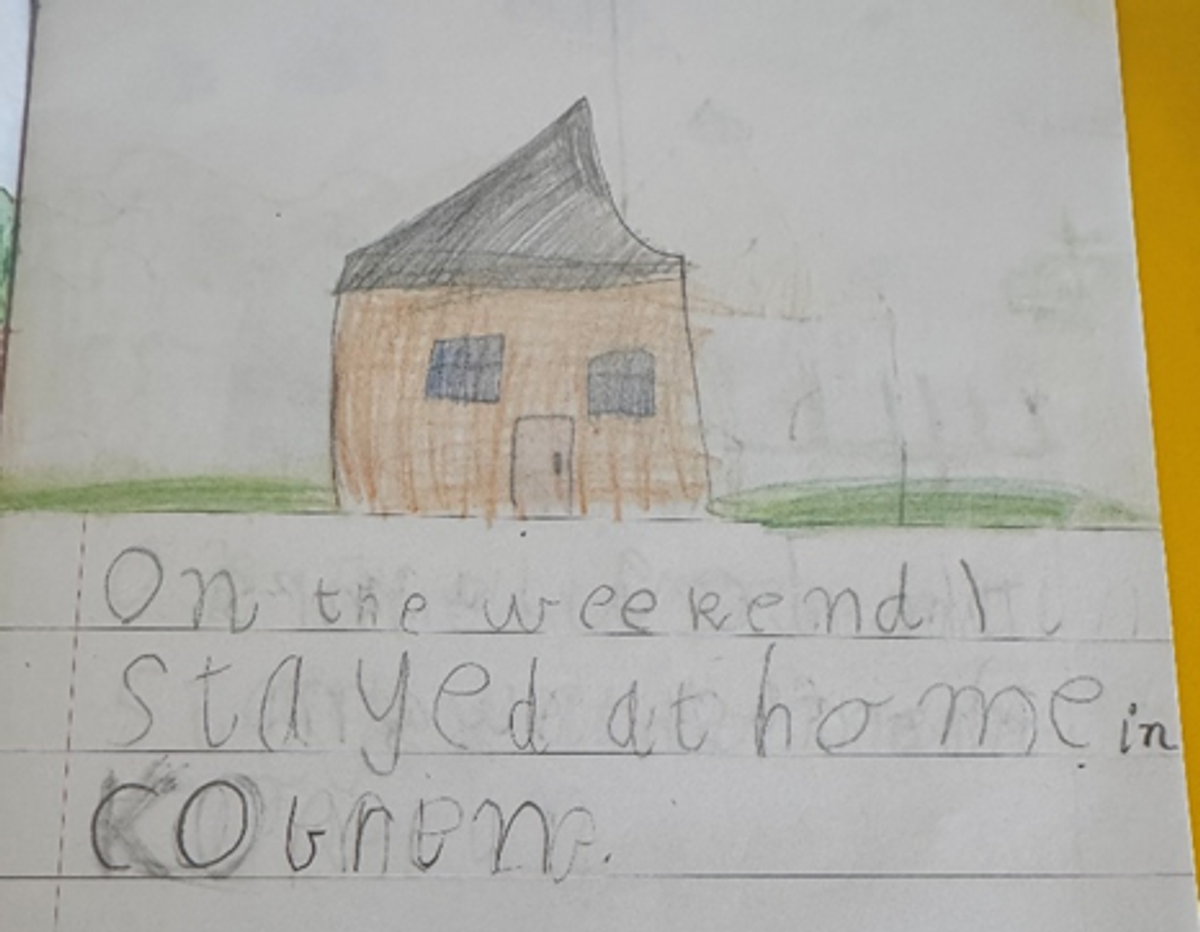 On the weekend I
stayed at home in